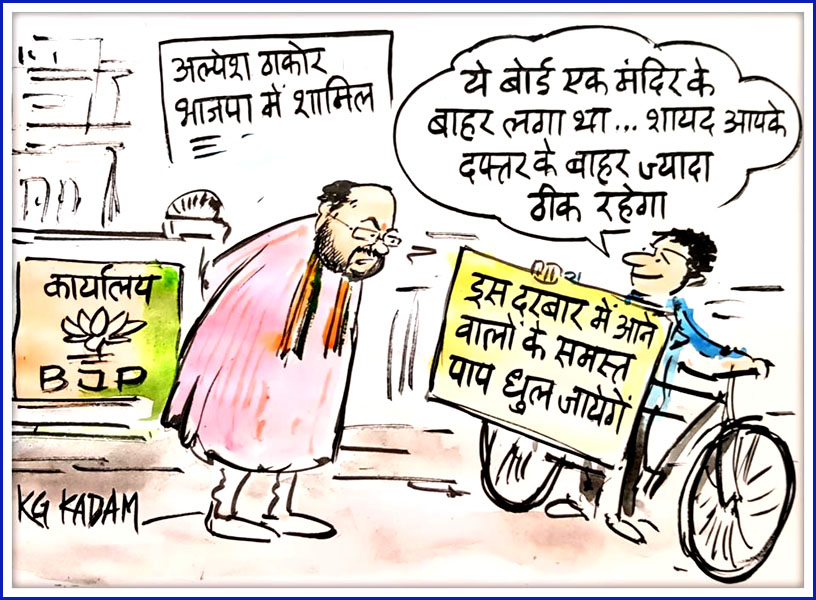 अल्पेश ठाकोर
भाजपा में शामिल
ये बोर्ड एक मंदिर के
बाहर लगा था... शायद आपके
दफ्तर के बाहर ज्यादा
ठीक रहेगा
कार्यालय
BJP
इस दरबार में आने
वालों के समस्त
पाप धुल जायेगें
KG KADAM